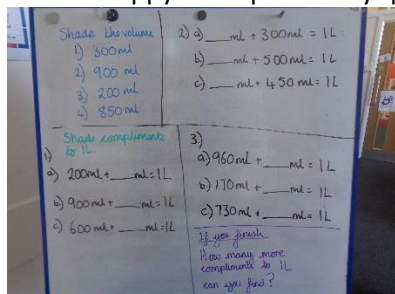 Shade the volume
1) 300ml
2) 900 ml
3) 200 ml
4) 850ml
2) a) ___ml + 300ml = 1L
b) ___ml + 500ml = 1L
c) ___ml + 450ml = 1L
Shade compliments
to 1L.
1)
a) 200ml + ___ml = 1L
b) 900ml + ___ml = 1L
c) 600ml + ___ml = 1L
3)
a) 960ml + ___ml = 1L
b) 170ml + ___ml = 1L
c) 730ml + ___ml = 1L
If you finish
How many more
compliments to 1L
can you find?
be